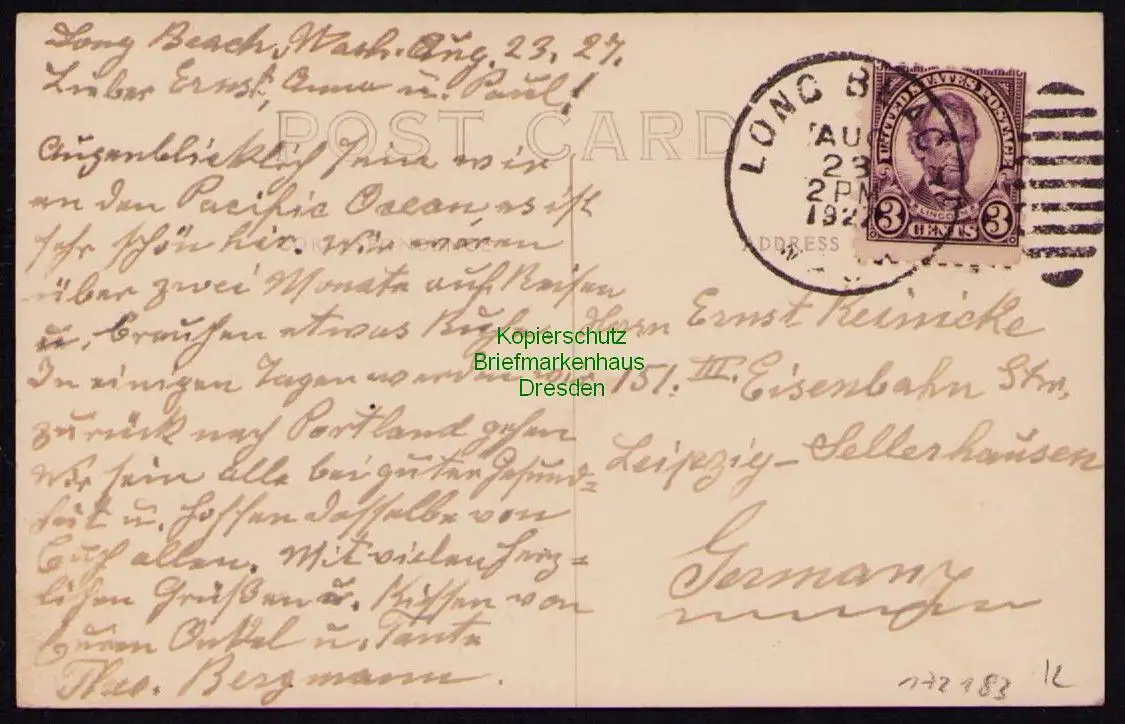 Long Beach, Wash. Aug. 23. 27.
Lieber Ernst, Anna u. Paul!
POST CARD
Augenblicklich sein wir
an den Pacific Ocean, es ist
sehr schön hir. Wir waren
über zwei Monate auf Reisen
u. brauchen etwas Ruhe.
In einigen Tagen werden wir
zurück nach Portland gehen
Wir sein alle bei guter Gesund=
heit u. hoffen dasselbe von
Euch allen. Mit vielen herz=
lichen Grüßen u. Küssen von
Euren Onkel u. Tante
Theo. Bergmann.
LONG BEACH
AUG
23
2 PM
1927
WASH.
UNITED STATES POSTAGE
LINCOLN
3 CENTS 3
CORRESPONDENCE
ADDRESS
Herrn Ernst Reinicke
151. III. Eisenbahn Str.
Leipzig-Sellerhausen
Germany
Kopierschutz
Briefmarkenhaus
Dresden
172183